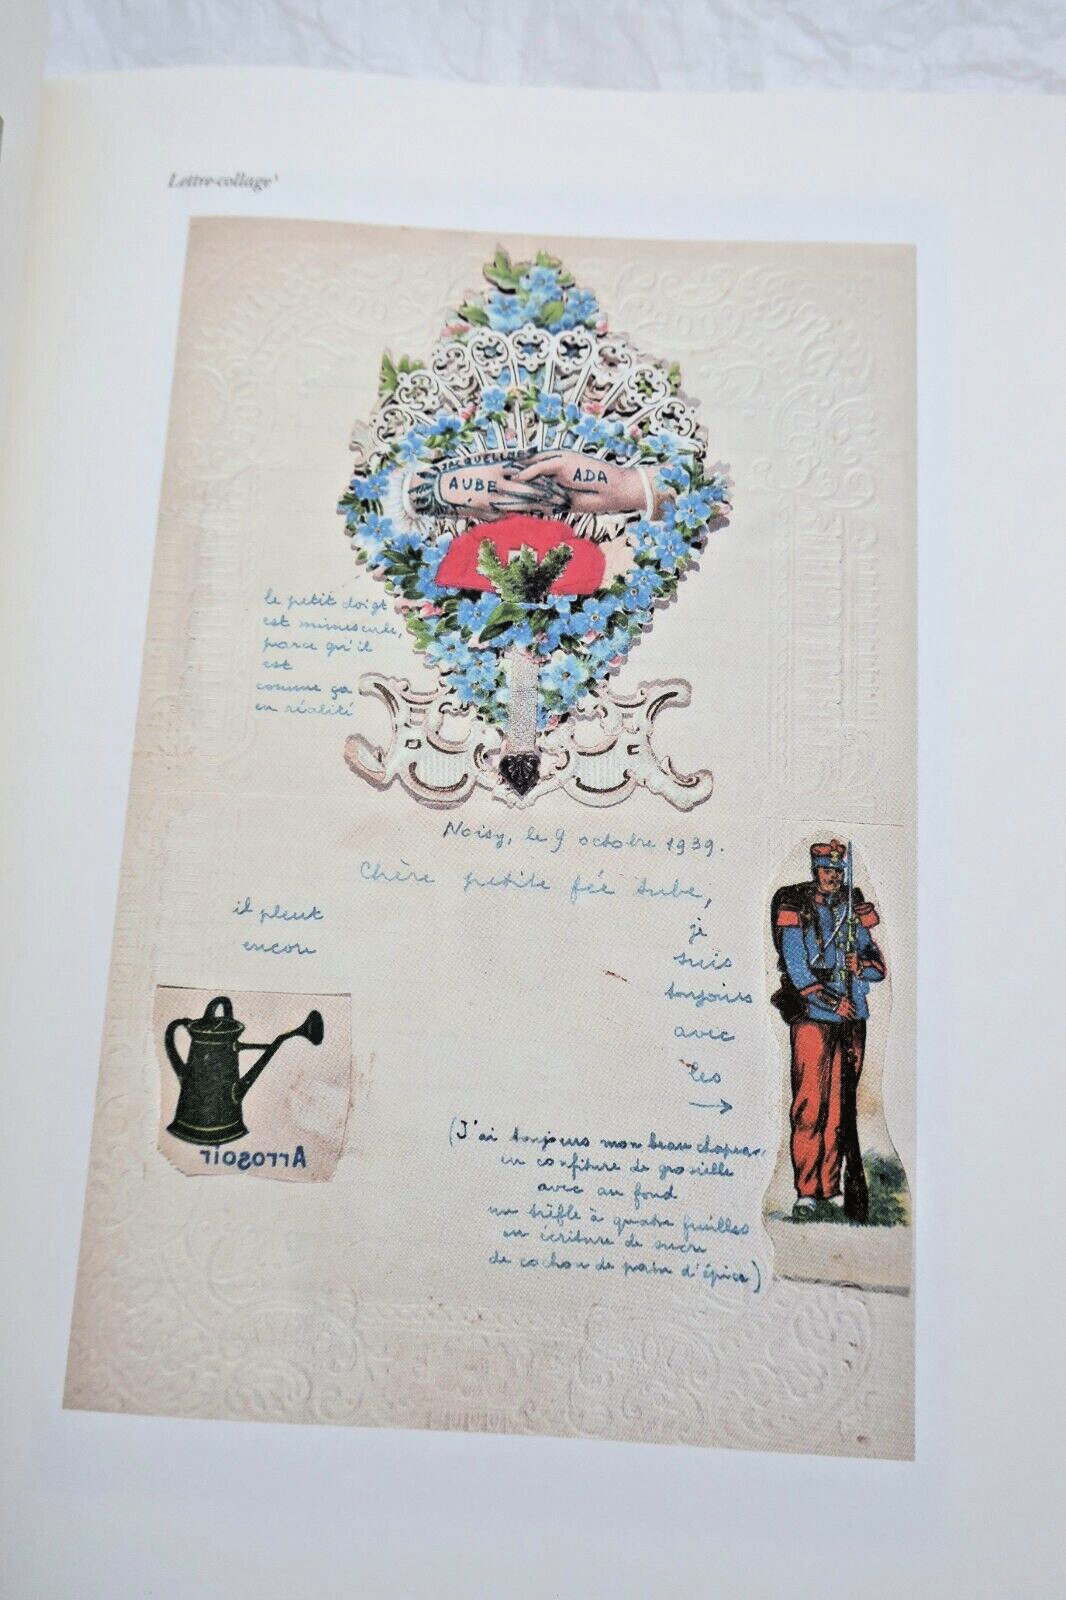 Lettre-collage¹
JACQUELINE
AUBE
ADA
le petit doigt
est minuscule,
parce qu'il
est
comme ça
en réalité
Noisy, le 9 octobre 1939.
Chère petite fée Aube,
il pleut
encore
je
suis
toujours
avec
les
→
Arrosoir
(J'ai toujours mon beau chapeau
en confiture de groseille
avec au fond
un trèfle à quatre feuilles
en écriture de sucre
de cochon de pain d'épice)